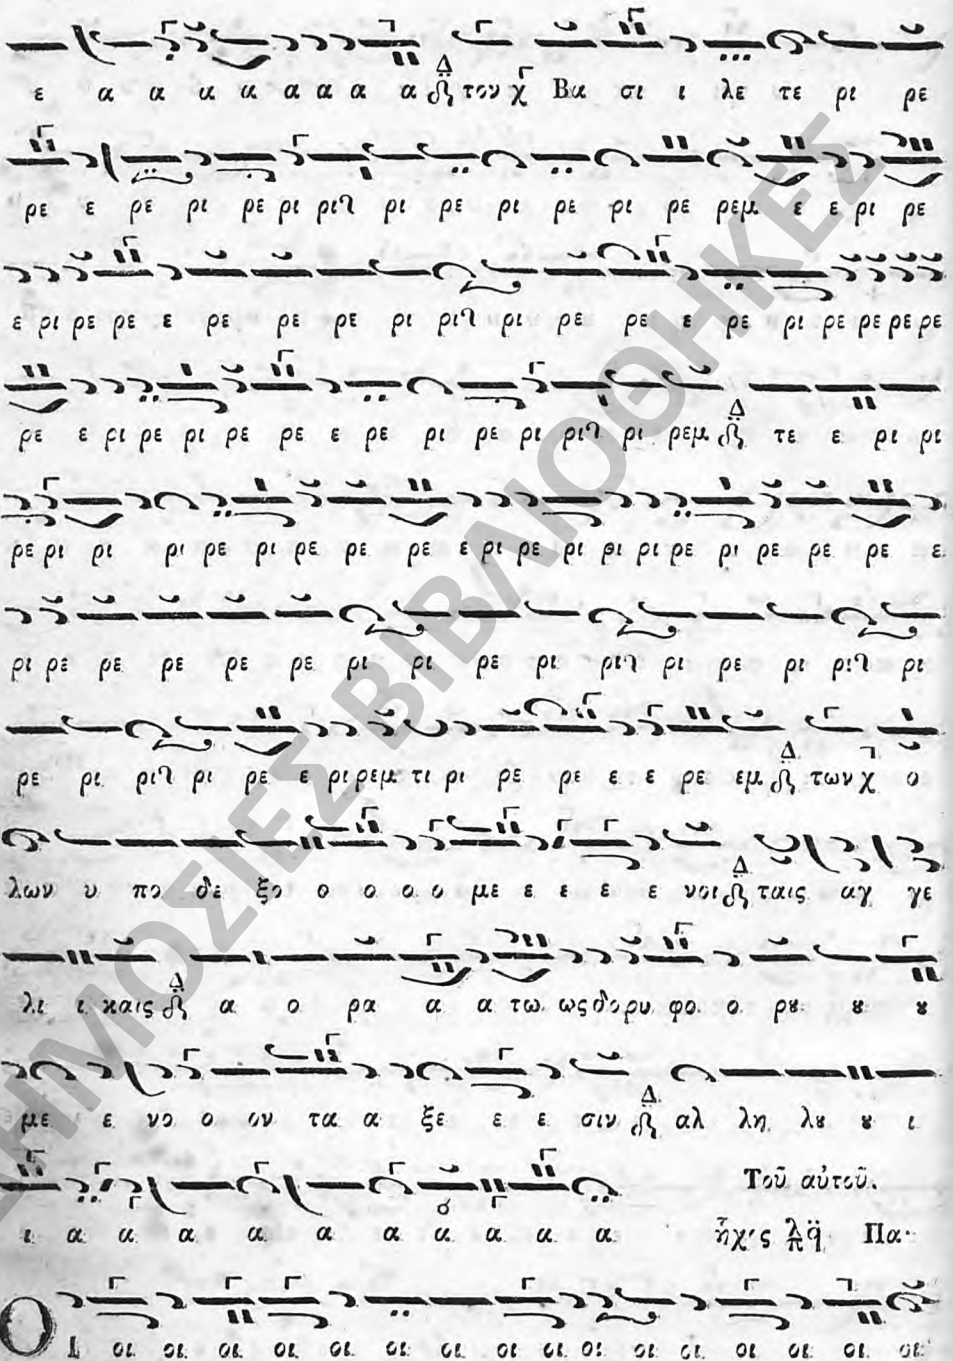 ε α α α α α α α α Δ τον χ Βα σι ι λε τε ρι ρε
ρε ε ρε ρι ρε ρι ριτ ρι ρε ρι ρε ρι ρε ρεμ ε ε ρι ρε
ε ρι ρε ρε ε ρε ρε ρε ρι ριτ ρι ρε ρε ε ρε ρι ρε ρε ρε ρε
ρε ε ρι ρε ρι ρε ρε ε ρε ρι ρε ρι ριτ ρι ρεμ Δ τε ε ρι ρι
ρε ρι ρι ρι ρε ρι ρε ρε ρε ε ρι ρε ρι ρι ρι ρε ρι ρε ρε ρε ε
ρι ρε ρε ρε ρε ρε ρι ρι ρε ρι ριτ ρι ρε ρι ριτ ρι
ρε ρι ριτ ρι ρε ε ρι ρεμ τι ρι ρε ρε ε ε ρε εμ Δ των χ ο
λων υ πο δε ξο ο ο ο ο με ε ε ε ε νοι Δ ταις αγ γε
λι ι καις Δ α ο ρα α α τω ως δο ρυ φο ο ρȣ ȣ ȣ
με ε νο ο ον τα α ξε ε ε σιν Δ αλ λη λȣ ȣ ι
ι α α α α α α α α α α Τοῦ αὐτοῦ.
ἦχος λ π ᾳ Πα
Ο Ι οι οι οι οι οι οι οι οι οι οι οι οι οι οι οι οι
ΔΗΜΟΣΙΕΣ ΒΙΒΛΙΟΘΗΚΕΣ